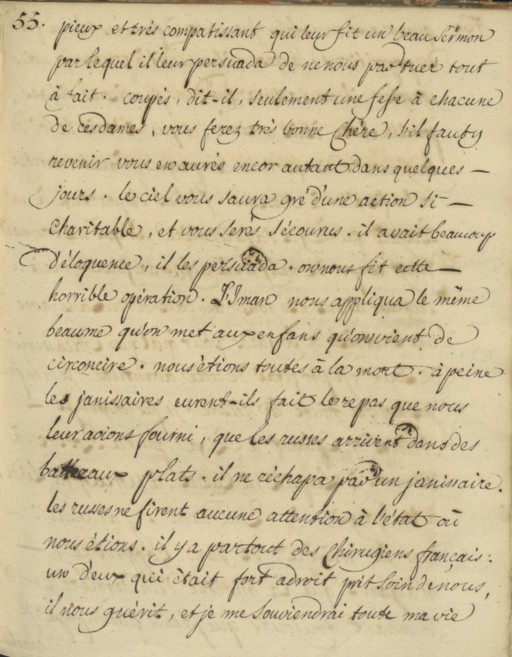 55.
pieux et très compatissant qui leur fit un beau sermon
par lequel il leur persuada de ne nous pas tuer tout
à fait. coupés, dit-il, seulement une fesse à chacune
de ces dames, vous ferez très bonne chère, s'il faut y
revenir vous en aurés encor autant dans quelques —
jours. le ciel vous saura gré d'une action si —
charitable, et vous serés sécourus. il avait beaucoup
d'éloquence, il les persuada. on nous fit cette —
horrible opération. L'Iman nous appliqua le même
beaume qu'on met aux enfans qu'on vient de
circoncire. nous étions toutes à la mort. à peine
les janissaires eurent-ils fait le repas que nous
leur avions fourni, que les russes arrivent dans des
batteaux plats. il ne réchapa pas un janissaire.
les russes ne firent aucune attention à l'état où
nous étions. il y a partout des chirugiens français:
un d'eux qui était fort adroit prit soin de nous,
il nous guérit, et je me souviendrai toute ma vie